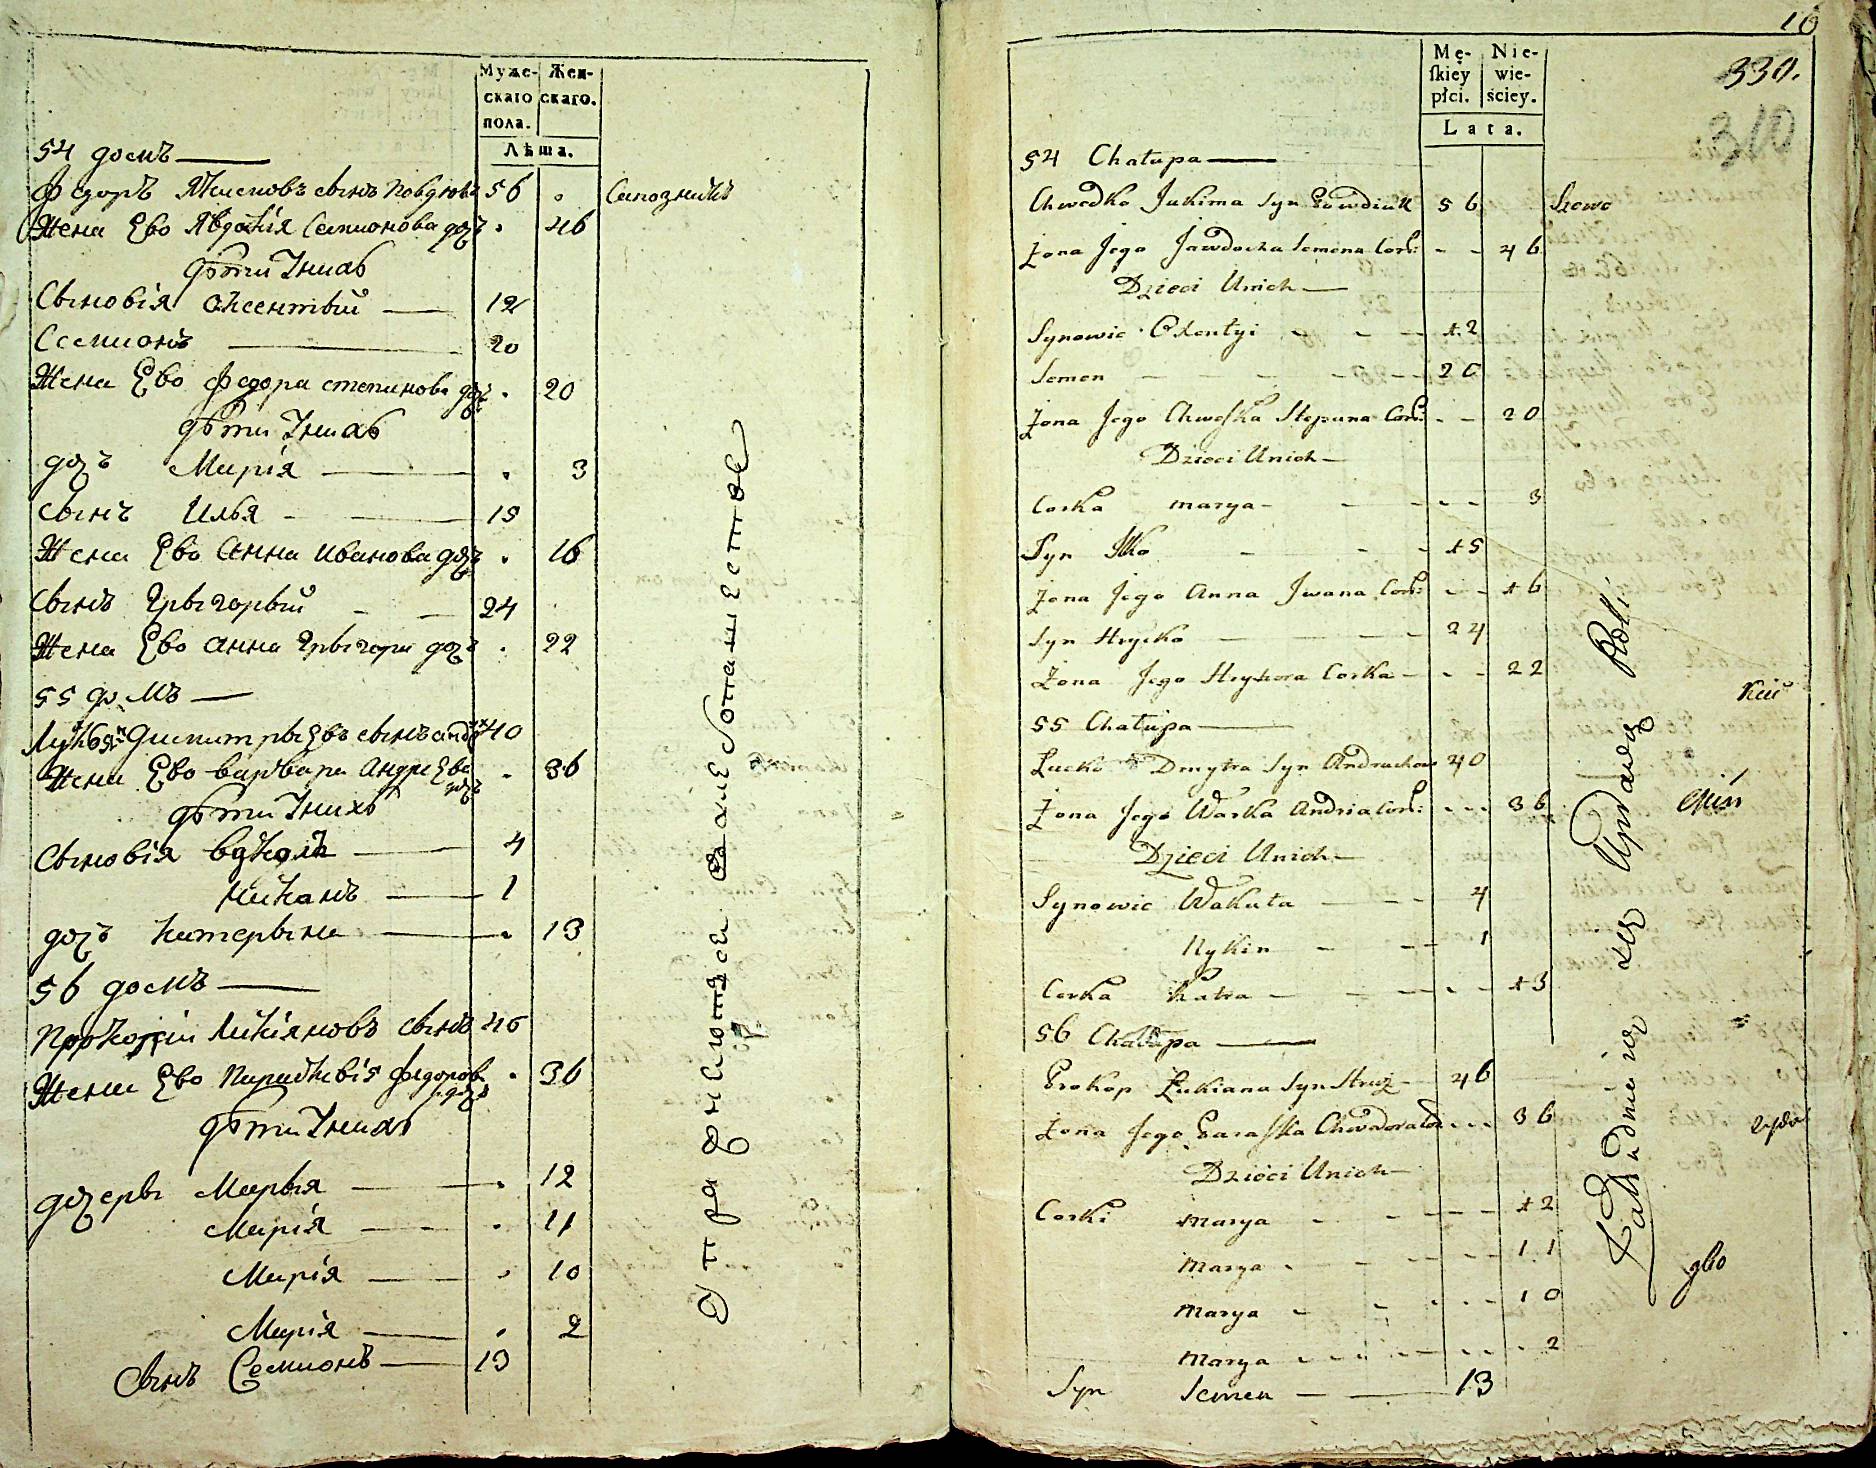 Муже-
скаго
пола.
Жен-
скаго.
Лѣта.
54 домъ
Федоръ Якимовъ сынъ Повдюкъ 56 Сапожникъ
Жена Ево Явдокія Семионова дочь 46
Дѣти Унихъ
Сыновія Оксентый 12
Семионъ 20
Жена Ево Федора степанова дочь 20
Дѣти Унихъ
дочъ Марія 3
Сынъ Илья 15
Жена Ево Анна Иванова дочъ 16
Сынъ Грыгорый 24
Жена Ево Анна Грыгора дочъ 22
55 домъ
Дмитрыевъ сынъ 40
Жена Ево варвара Андрѣева дочъ 36
Дѣти Унихъ
Сыновія 4
Никанъ 1
дочъ Катерына 13
56 домъ
Прокопій Лукіановъ Сынъ 46
Жена Ево Парасковія Федорова дочъ 36
Дѣти Унихъ
дочеры Марыя 12
Марія 11
Марія 10
Марія 2
Сынъ Семионъ 13
Упражняются Хлебопашеством
10
330.
310
Mę-
skiey
płci.
Nie-
wie-
ściey.
Lata.
54 Chałupa
Chwedko Jakima Syn Powdiuk 56 Szewc
Żona Jego Jawdocha Semena Cork: 46
Dzieci Unich
Synowie Oxentyi 12
Semen 20
Żona Jego Chweśka Stepana Cork: 20
Dzieci Unich
Corka Marya 3
Syn Ilko 15
Żona Jego Anna Iwana Cork: 16
Syn Hryćko 24
Żona Jego Hryhora Corka 22
55 Chałupa
Łucko Dmytra Syn 40
Żona Jego Warka Andria Cork: 36
Dzieci Unich
Synowie Wakuła 4
Nykin 1
Corka Katra 13
56 Chałupa
Prokop Łukiana Syn 46
Żona Jego Paraśka Chwedora 36
Dzieci Unich
Corki Marya 12
Marya 11
Marya 10
Marya 2
Syn Semen 13
Zatrudnieni są Uprawą Roli